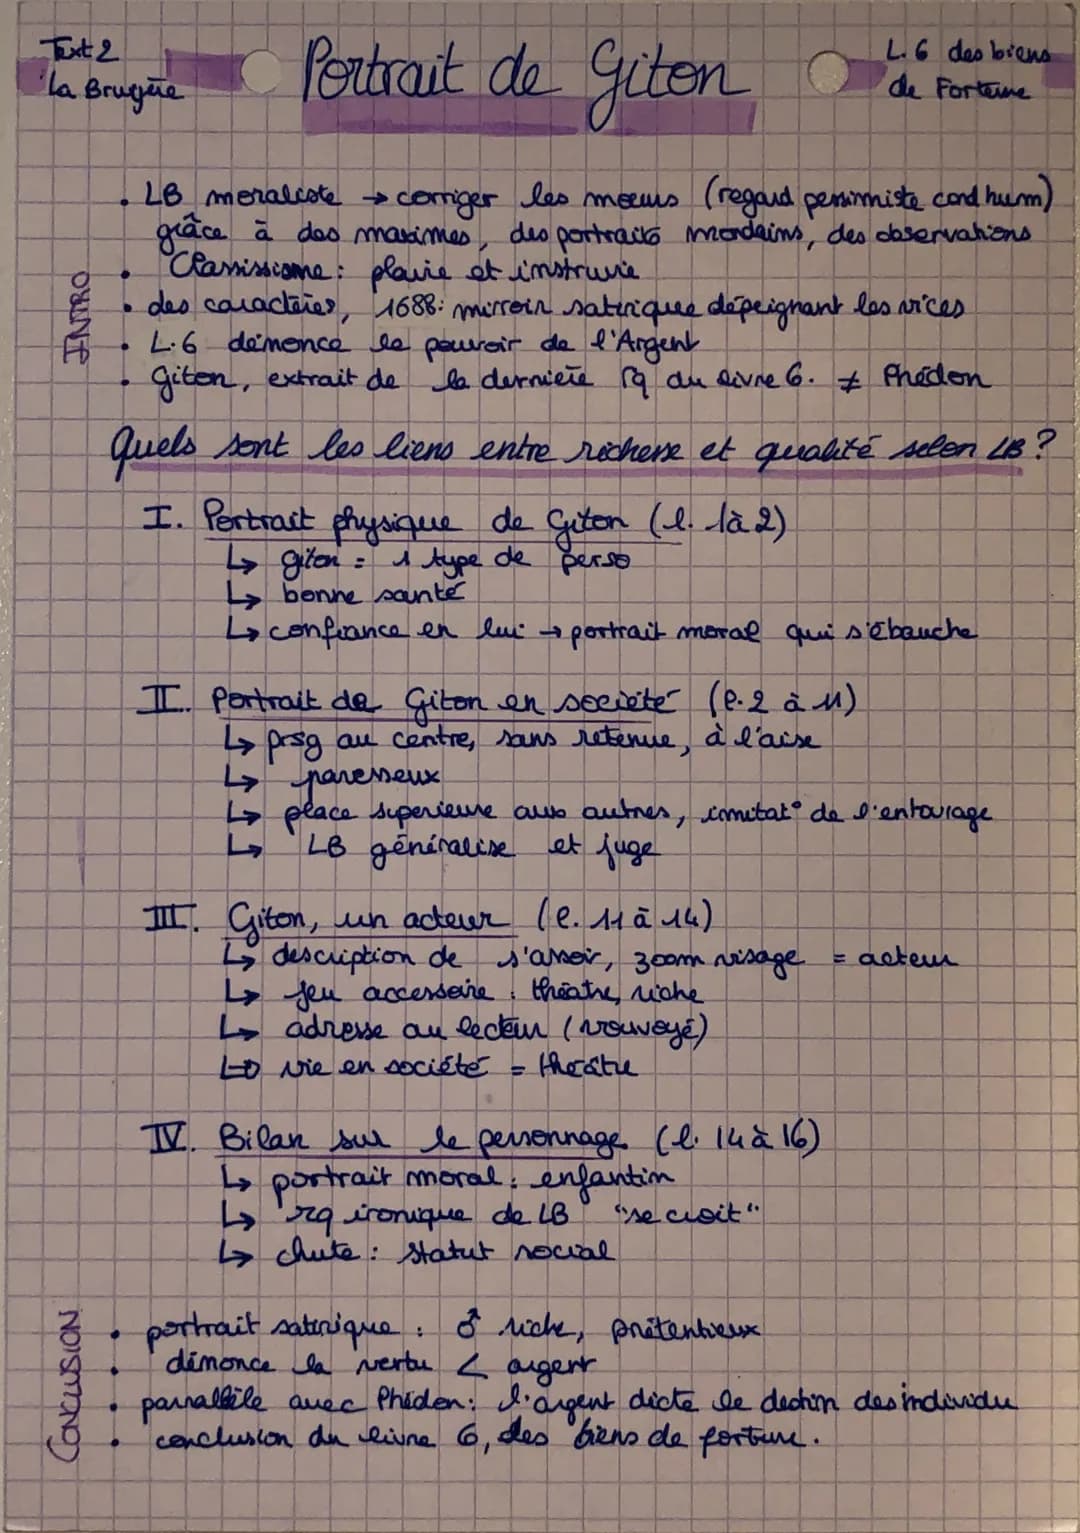 Text 2
La Bruyère
Portrait de Giton
L. 6 des biens
de Fortune
INTRO
• LB moraliste → corriger les mœurs (regard pessimiste cond hum)
grâce à des maximes, des portraits mordains, des observations
• Classissisme : plaire et instruire
• des caractères, 1688 : mirroir satirique dépeignant les vices
• L.6 dénonce le pouvoir de l'Argent
• Giton, extrait de la dernière rq du livre 6. ≠ Phédon
Quels sont les liens entre richesse et qualité selon LB ?
I. Portrait physique de Giton (l. 1 à 2)
↳ giton = 1 type de perso
↳ bonne santé
↳ confiance en lui → portrait moral qui s'ébauche
II. Portrait de Giton en société (l. 2 à 11)
↳ prsg au centre, sans retenue, à l'aise
↳ paresseux
↳ place supérieure aux autres, imitat° de l'entourage
↳ LB généralise et juge
III. Giton, un acteur (l. 11 à 14)
↳ description de s'assoir, zoom visage = acteur
↳ jeu accessoire : théatre, riche
↳ adresse au lecteur (vouvoyé)
↳ vie en société = théâtre
IV. Bilan sur le personnage (l. 14 à 16)
↳ portrait moral : enfantin
↳ rq ironique de LB "se croit"
↳ chute : statut social
CONCLUSION
• portrait satirique : ♂ riche, prétentieux
• dénonce la vertu < argent
• parrallèle avec Phédon : l'argent dicte le destin des individu
• conclusion du livre 6, des biens de fortune.